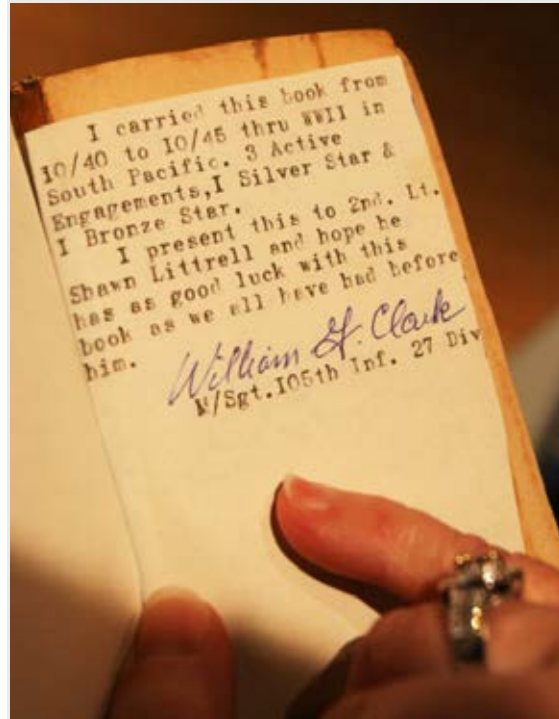 I carried this book from
IO/40 to IO/45 thru WWII in
South Pacific. 3 Active
Engagements,I Silver Star &
I Bronze Star.
I present this to 2nd. Lt.
Shawn Littrell and hope he
has as good luck with this
book as we all have had before
him.
William H. Clark
M/Sgt.IO5th Inf. 27 Div